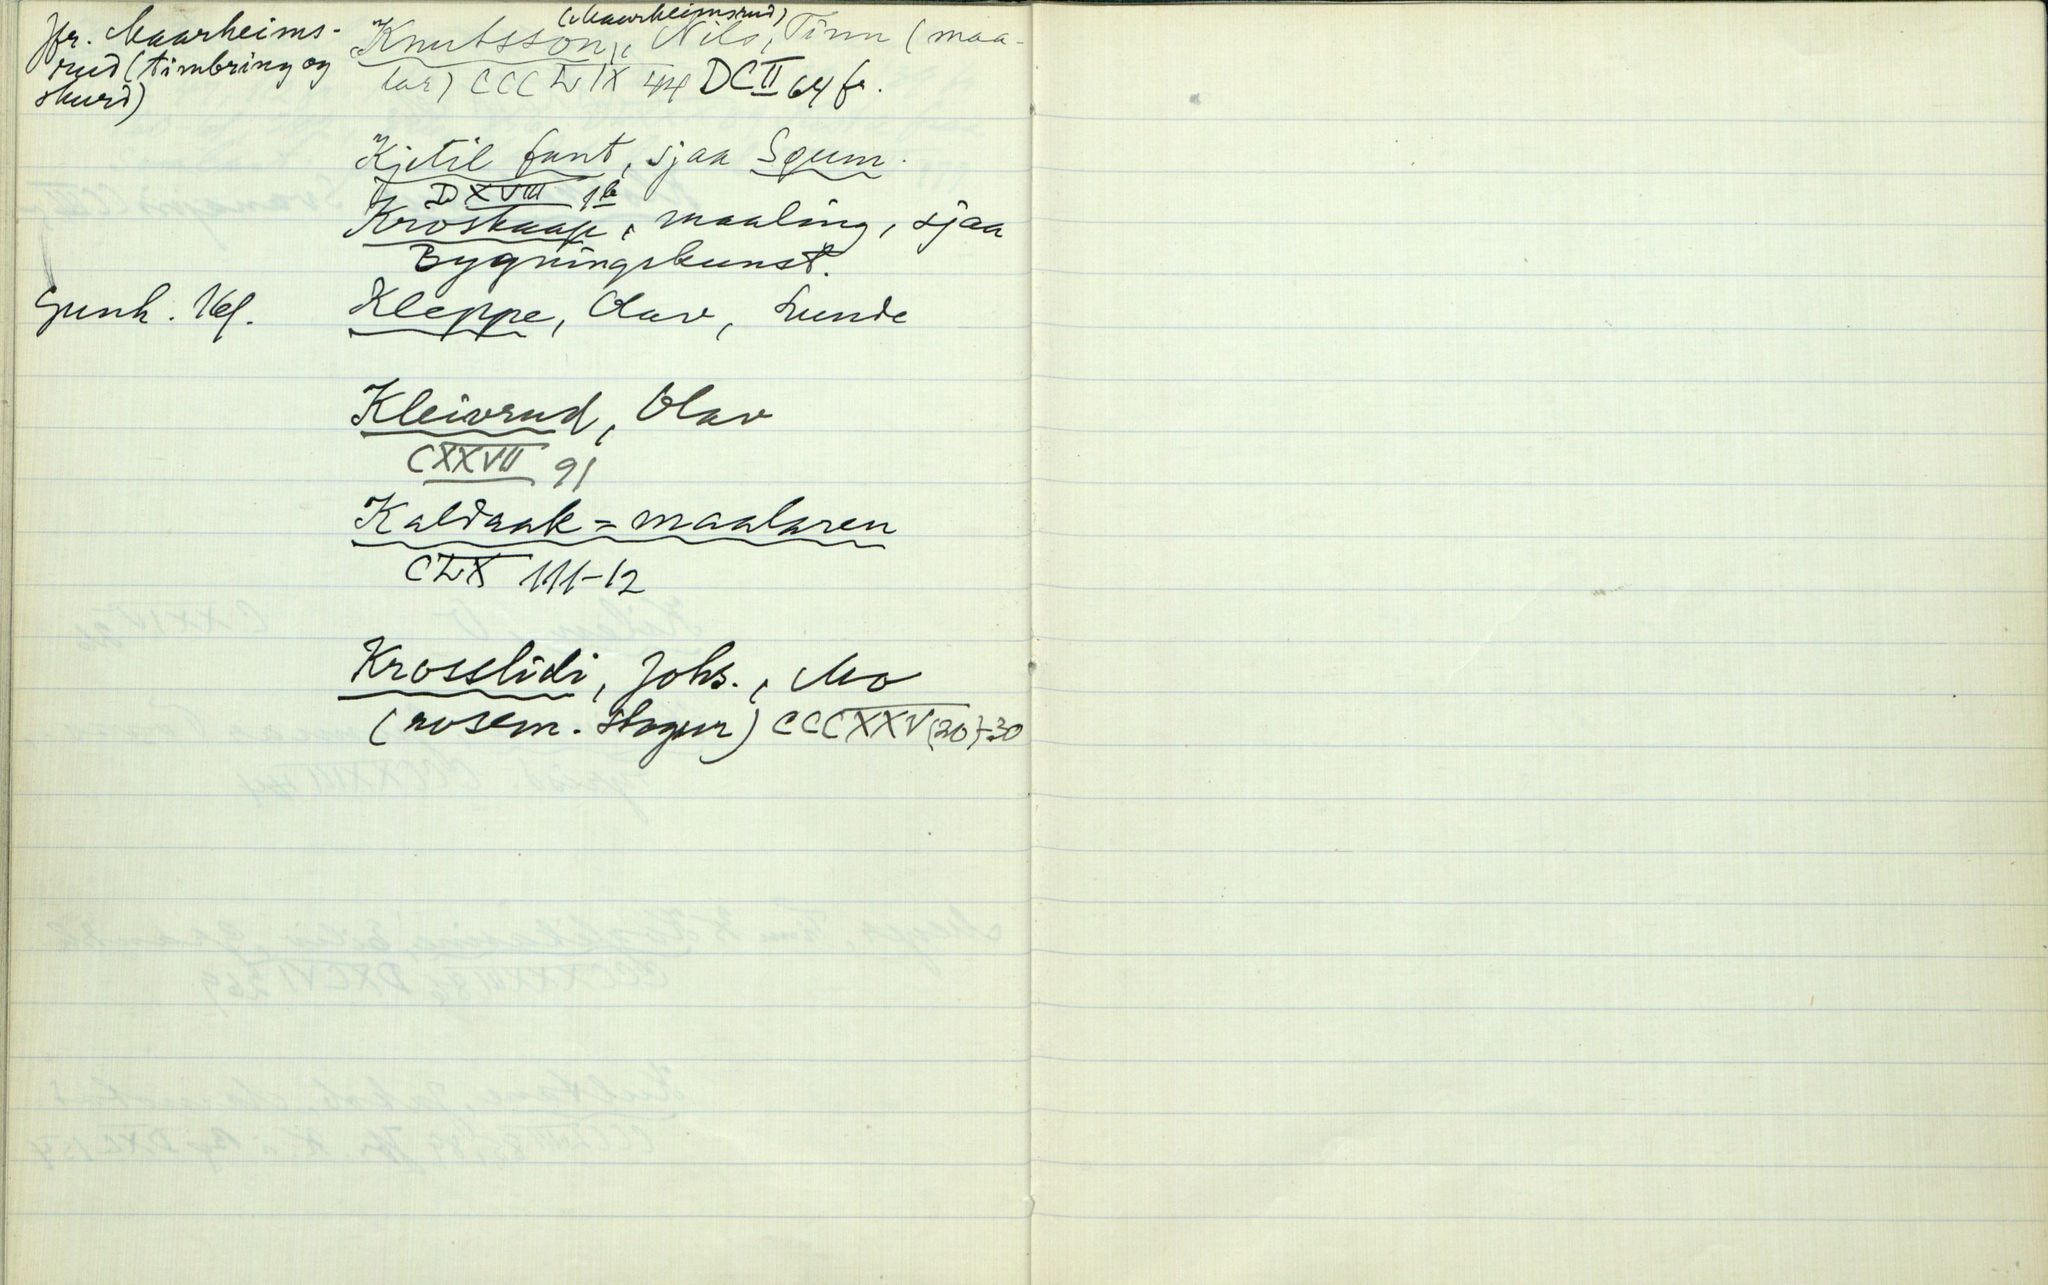 Jfr. Maarheims-
rud (timbring og
skurd)
(Maarheimsrud)
Knutsson, Nils, Tinn (maa-
lar) CCCLIX 44 DCII 64 fr.
Kjetil fant, sjaa Squm.
DXVIII 1b
Kroskaap, maaling, sjaa
Bygningskunst.
Gunh. Kl.
Kleppe, Olav, Lunde
Kleivrud, Olav
CXXVII 91
Kaldsak-maalaren
CLX 111-12
Krosslidi, Johs., Mo
(rosem. stogur) CCCXXV (20)-30